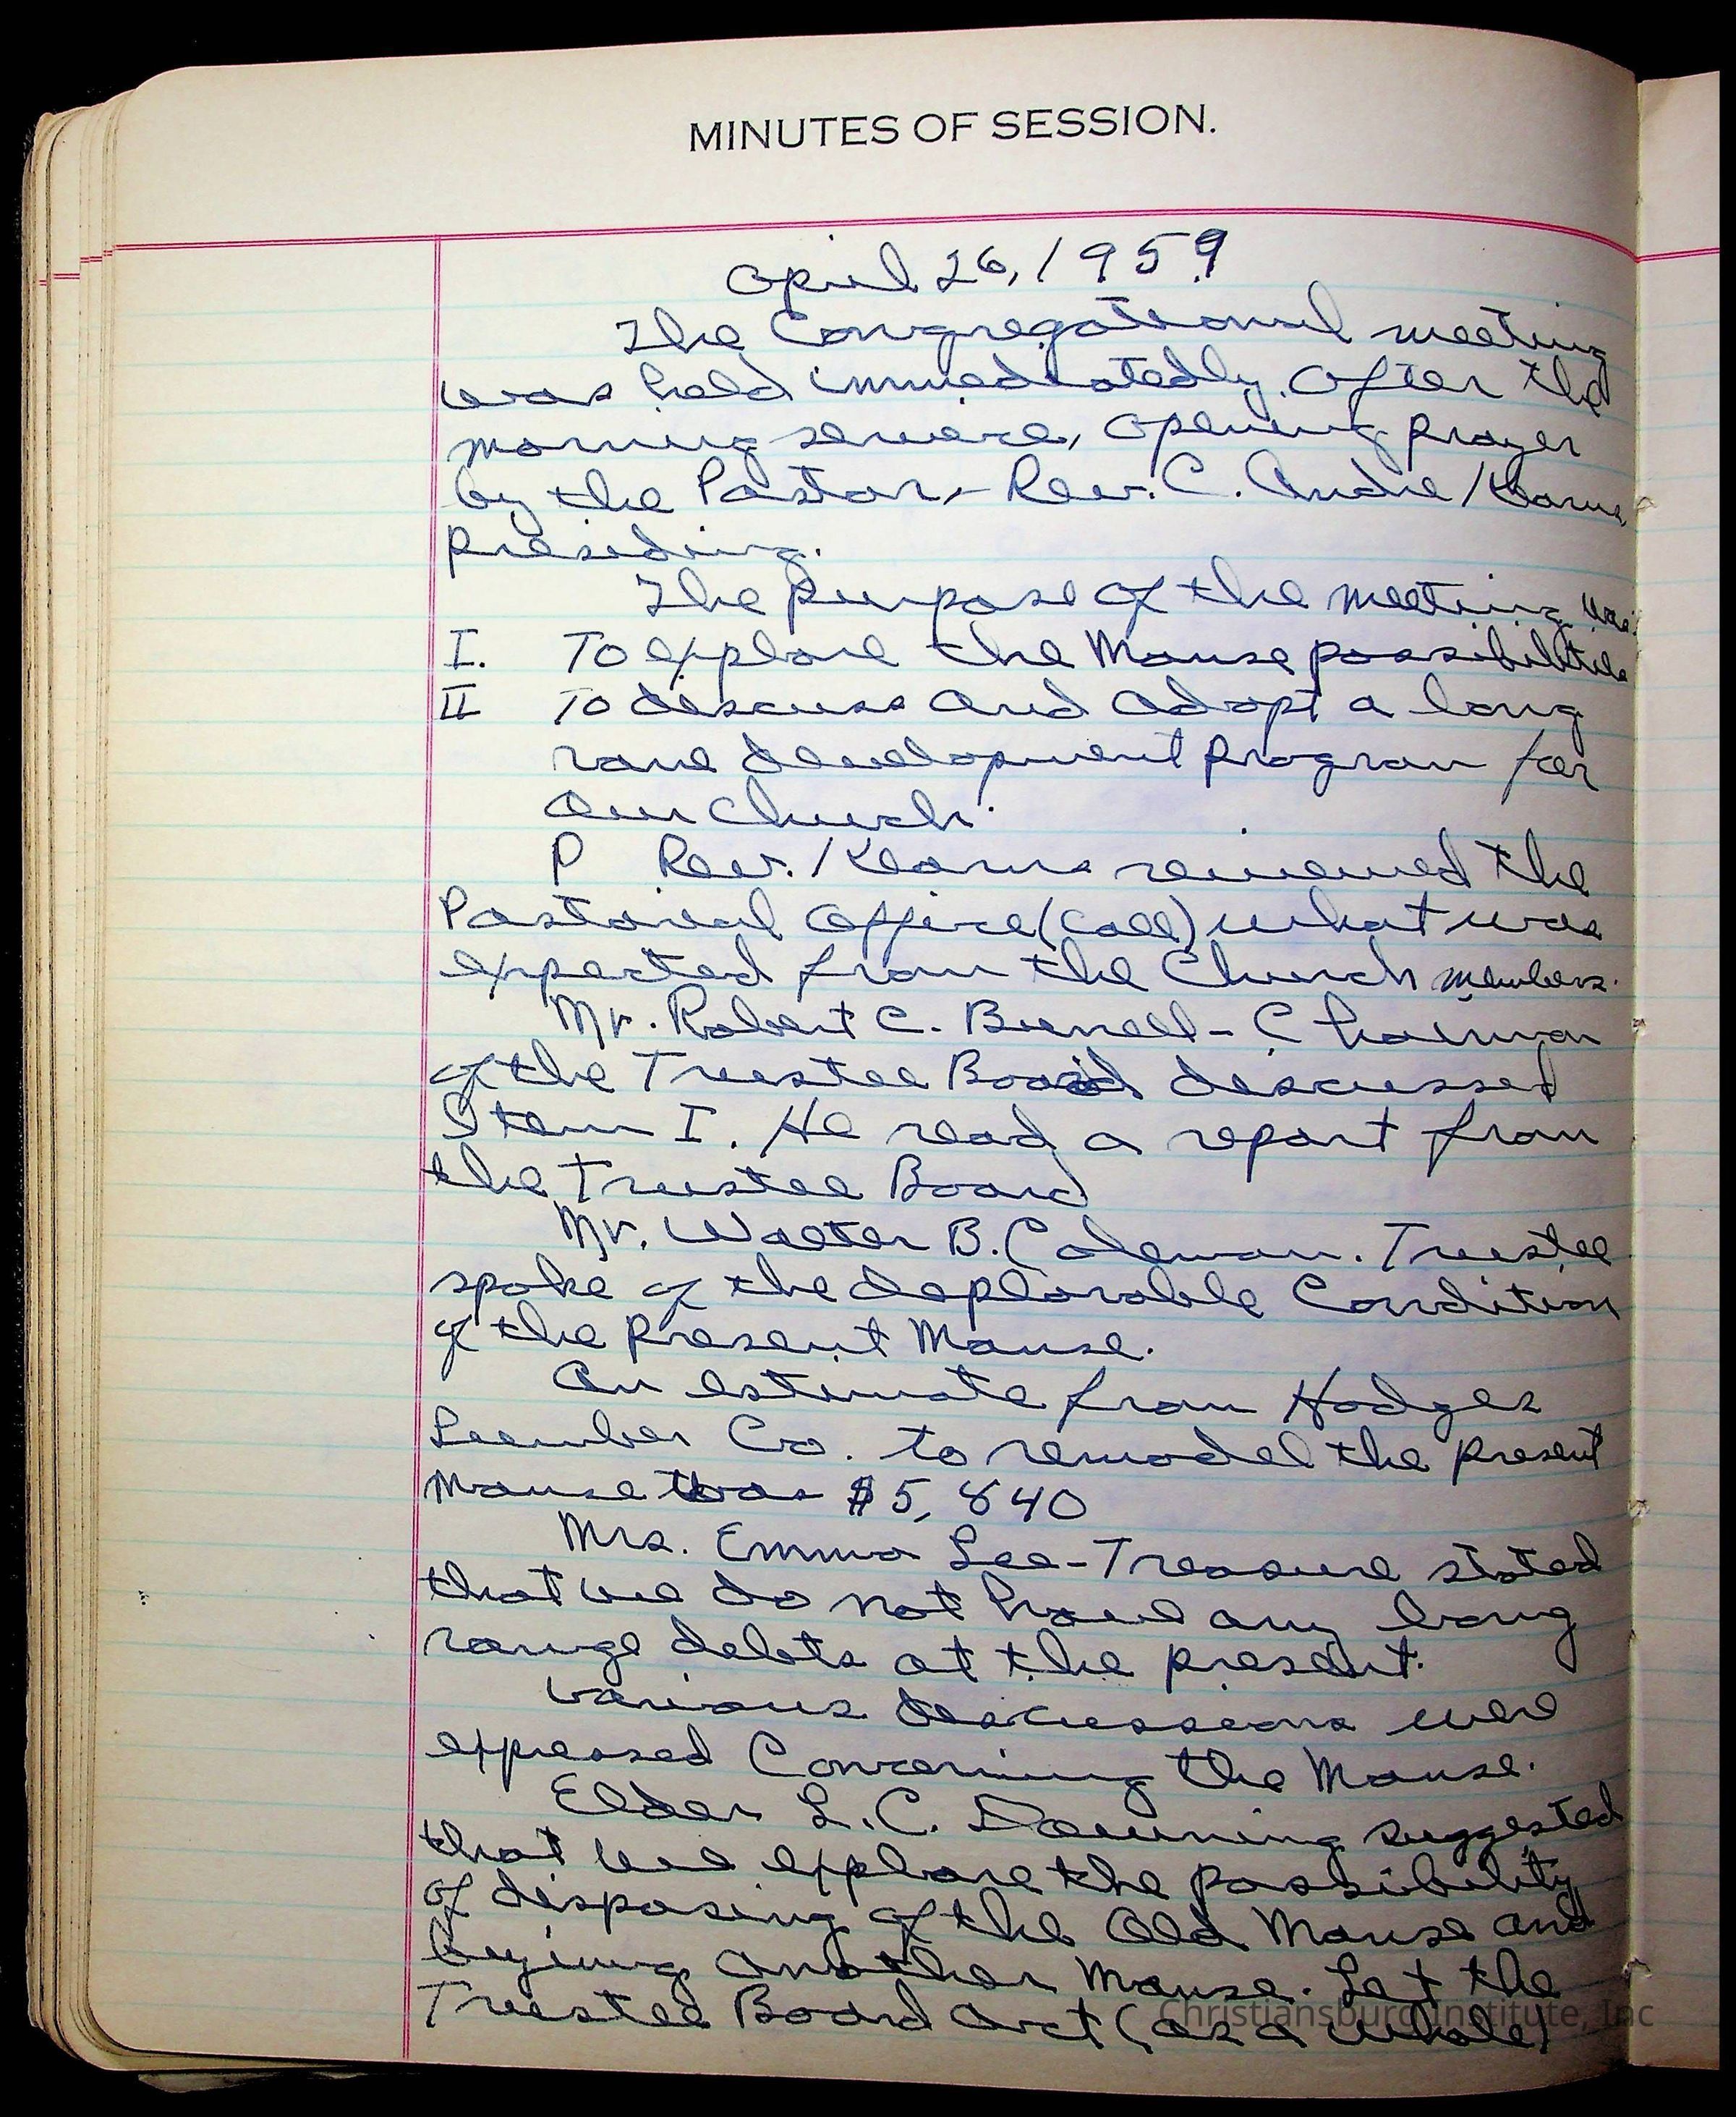 MINUTES OF SESSION.
April 26, 1959
The Congregational meeting
was held immediatedly after the
morning service, opening prayer
by the Pastor,- Rev. C. Andre Kearns
presiding.
The purpose of the meeting was:
I. To explore the Manse possibilities
II To discuss and adopt a long
rane development program for
our church.
P Rev. Kearns reviewed the
Pastoral Office (call) what was
expected from the Church members.
Mr. Robert C. Burrell - Chairman
of the Trustee Board discussed
Item I. He read a report from
the Trustee Board
Mr. Walter B. Coleman. Trustee
spoke of the deplorable Condition
of the present Manse.
An estimate from Hodges
Lumber Co. to remodel the present
Manse was $5,840
Mrs. Emma Lee-Treasure stated
that we do not have any long
range debts at the present.
Various discussions were
expressed Concerning the Manse.
Elder L.C. Downing suggested
that we explore the possibility
of disposing of the Old Manse and
buying another Manse. Let the
Trustee Board act (as a whole)
Christiansburg Institute, Inc